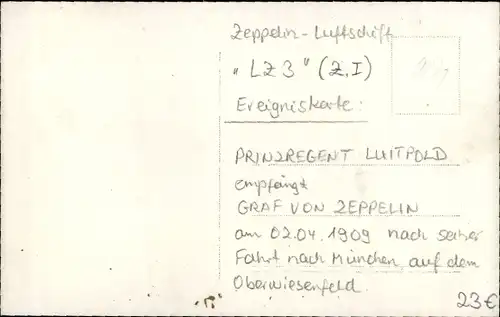 Zeppelin-Luftschiff
"LZ3" (Z.I)
Ereigniskarte:
PRINZREGENT LUITPOLD
empfängt
GRAF VON ZEPPELIN
am 02.04.1909 nach seiner
Fahrt nach München, auf dem
Oberwiesenfeld.
23€